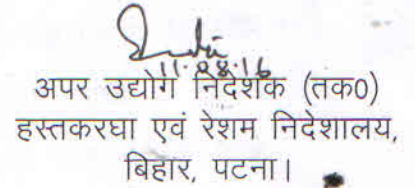 11.08.16
अपर उद्योग निदेशक (तक0)
हस्तकरघा एवं रेशम निदेशालय,
बिहार, पटना।